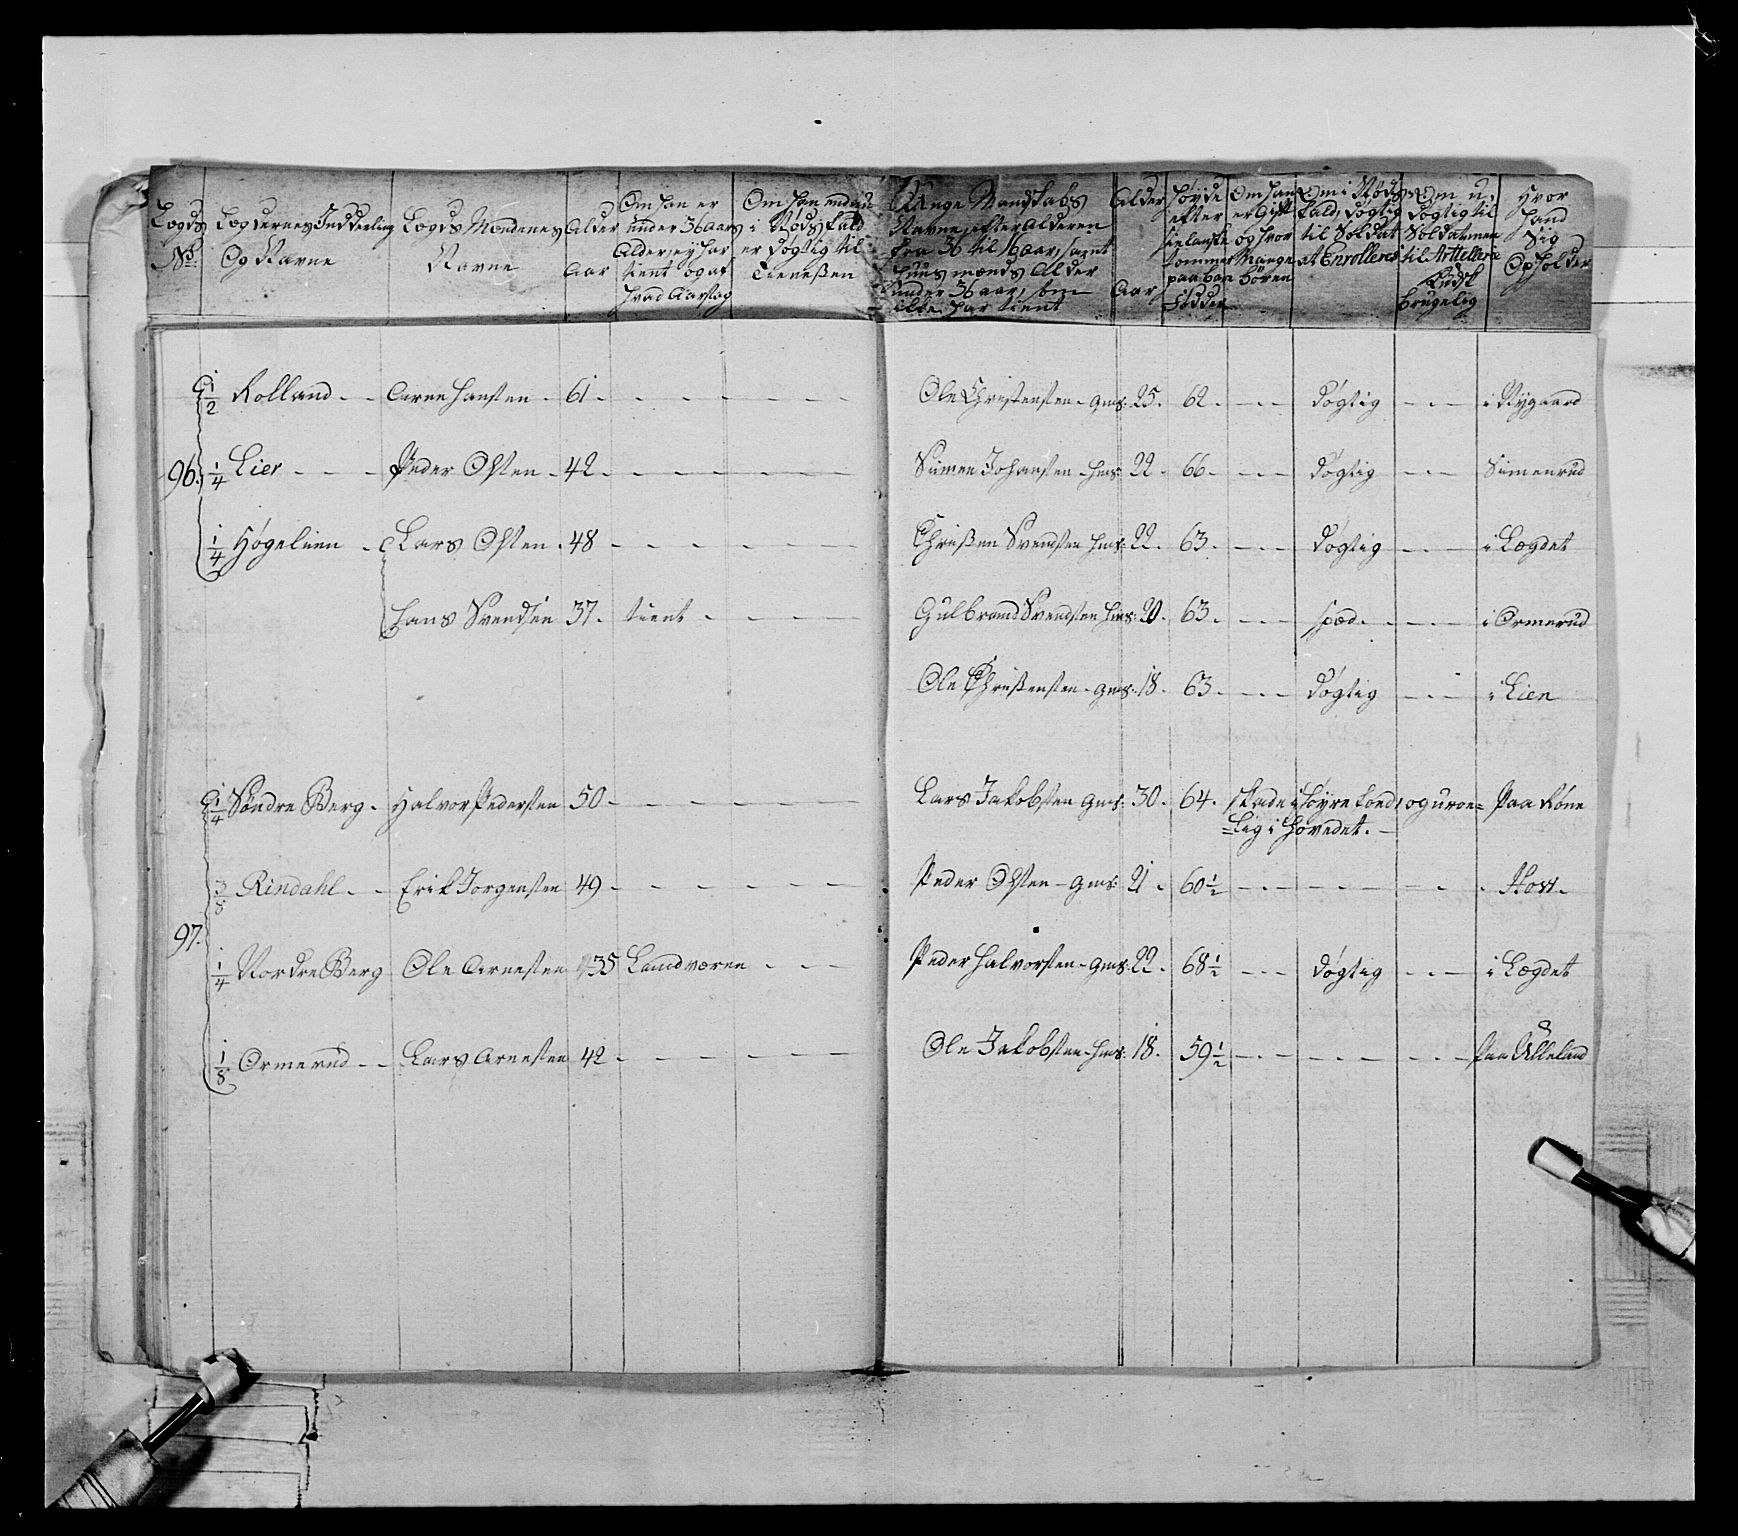 Legds No:
Legdernes Inddeeling Og Navne
Legds Mændenes Navne
Alder Aar
Om han er under 36 aars Alder, ey har tient og af hvad Aarsag
Om han endnu i Nøds fald er døgtig til Tienesten
Unge Mandskabs Navne, efter Alderen fra 36 til 16 aar, samt Huusmænds Alder under 36 aar, som ikke har tient
Alder Aar
Høyde efter Sielanske tommer paa bare Fødder
Om han er Gift og hvor Mange Børen
Om i Nøds fald, døgtig til Soldat at Enrolleres
Om u, døgtig til Soldat men til Artelleri Kudsk brugelig
Hvor hand Sig Opholder
1/2 Rolland - - Arne Hansen - 61 - Ole Christensen - gms: 25. 62. - døgtig - i Nygaard
96. 1/4 Lier - - - Peder Olsen - 42 - Simen Johansen - hms: 22. 66. - døgtig - Simenrud
1/4 Høgeliien - Lars Olsen - 48 - Christen Svendsen hms: 22. 63. - døgtig - i Legdet
Hans Svendsen 37. tient - Gulbrand Svendsen hms: 20. 63. - spæd. - i Ormerud
Ole Christensen - gms: 18. 63 - døgtig - i Lien
1/4 Søndre Berg - Halvor Pedersen 50 - Lars Jakobsen gms: 30. 64. skade i høyre haand, og uroe= Paa Røne
=lig i hovedet. -
3/8 Rindahl - - Erik Jorgensen 49 - Peder Olsen - gms: 21. 60 1/2 - Hov.
97. 1/4 Nordre Berg Ole Arnesen 35 Landværn - - - Peder Halvorsen - gms: 22. 68 1/2 - døgtig - i Legdet
1/8 Ormerud - - Lars Arnesen 42 - Ole Jakobsen - hms: 18. 59 1/2 - Paa Ulleland